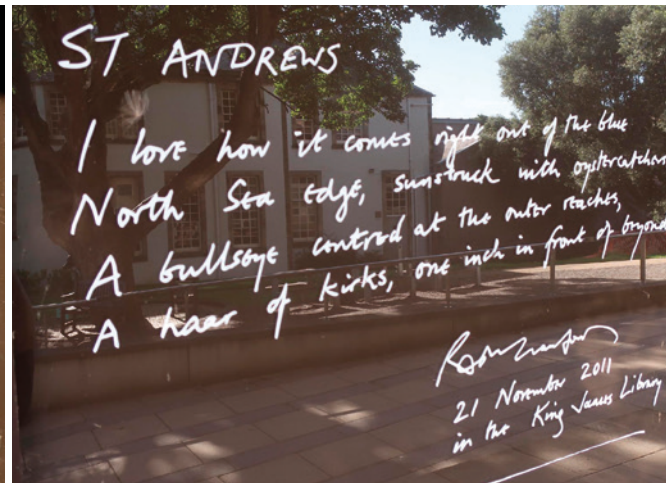 ST ANDREWS
I love how it comes right out of the blue
North Sea edge, sunstruck with oystercatchers
A bullseye centred at the outer reaches,
A haar of kirks, one inch in front of beyond
21 November 2011
in the King James Library